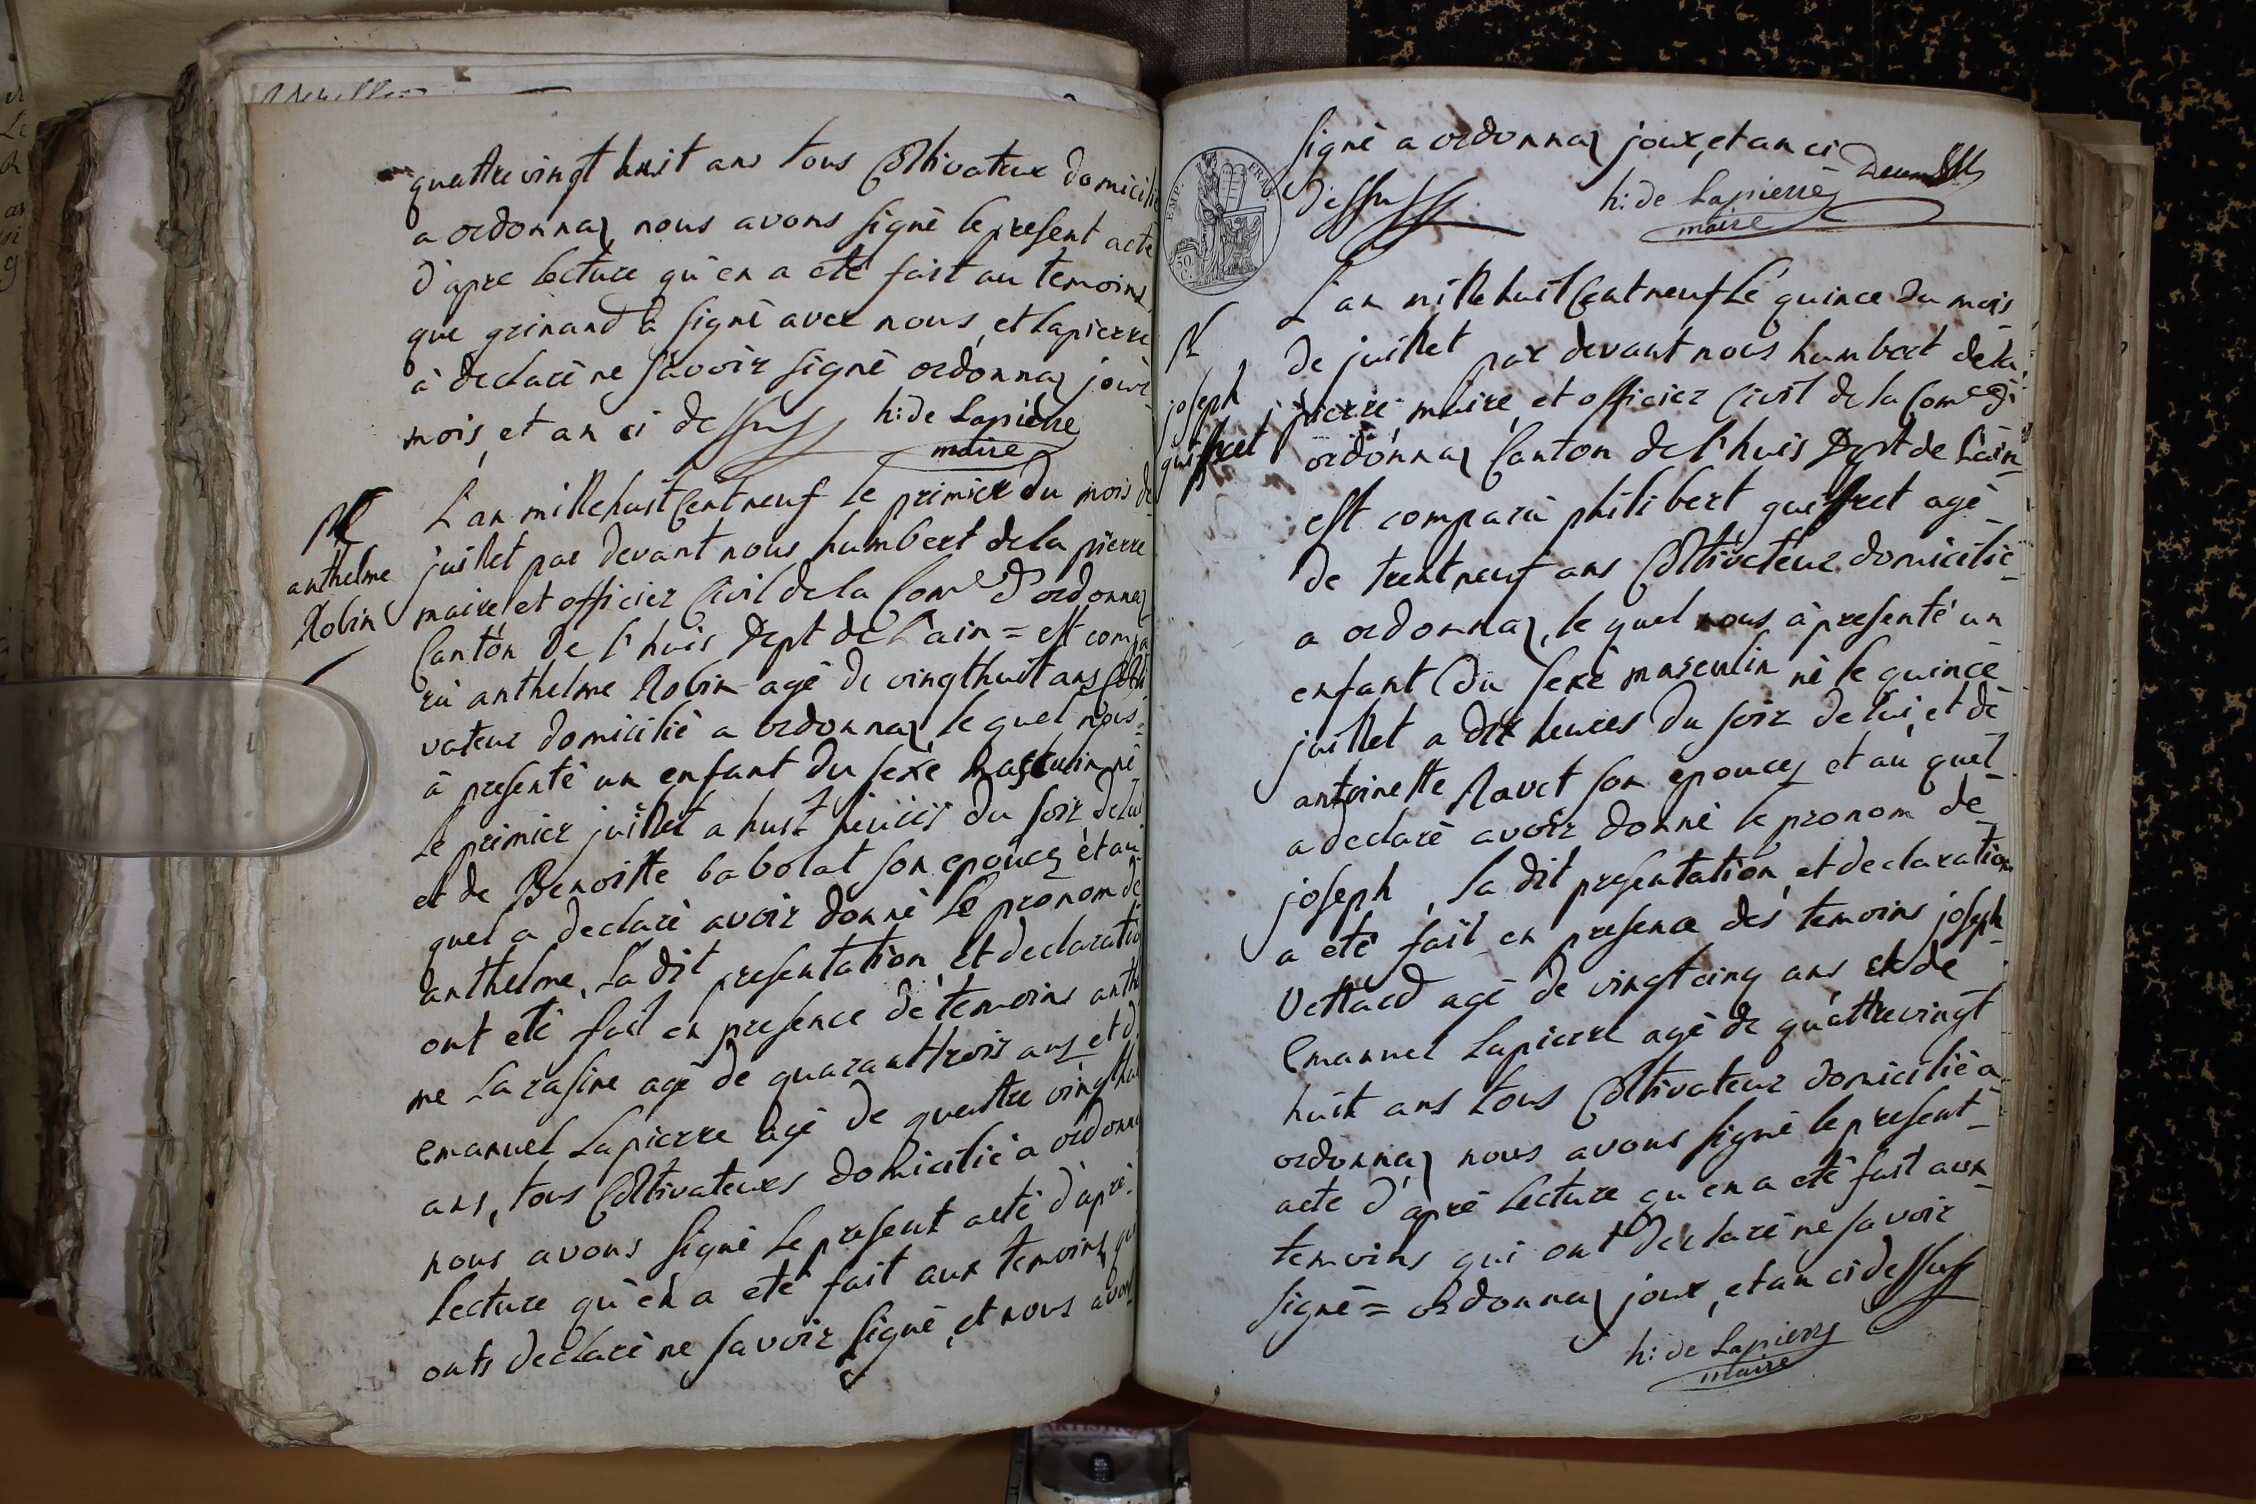 quattrevingt huit ans tous Coltivateur domicilié
a ordonnaz nous avons signé le present acte
d'apre lecture qu'en a eté fait au temoins
que grinand à signé avec nous, et Lapierre
à declaré ne savoir signé ordonnaz jour
mois, et an ci dessus h: de Lapierre
maire
anthelme
Robin
L'an mille huit Cent neuf le primier du mois de
juillet par devant nous humbert dela pierre
maire et officier Civil de la Come d'ordonnaz
Canton de l'huis Dept de L'ain = est compa
rû anthelme Robin agé de vingt huit ans Colti
vateur domicilié a ordonnaz le quel nous
à presenté un enfant du sexe masculin né
le primier juillet a huit heures du soir de lui
et de Benoitte babolat son epouce, et au
quel a declaré avoir donné le pronom de
anthelme, La dit presentation, et declaratio
ont eté fait en presence de temoins anthe
me Larasine agé de quarant trois ans et d
emanuel Lapierre agé de quattre vingt hui
ans, tous Coltivateurs domicilié a ordonna
nous avons signé le present acte d'apré
lecture qu'en a eté fait aux temoins qu
onts declaré ne savoir signé, et nous avons
signé a ordonnaz jour, et an ci
dessus h: de Lapierre
maire
EMP. FRAN.
joseph
guiffret
L'an mille huit Cent neuf Le quince du mois
de juillet par devant nous humbert de la
pierre maire, et officier Civil de la Come d'
ordonnaz Canton de l'huis Dept de L'ain
est comparu philibert guiffret agé
de trent neuf ans Coltivateur domicilié
a ordonnaz, le quel nous à presenté un
enfant du sexe masculin né le quince
juillet a dix heures du soir de lui, et de
antoinette Ravet son epouce, et au quel
a declaré avoir donné le pronom de
joseph, La dit presentation, et declaration
a eté fait en presence des temoins joseph
Vettard agé de vingt cinq ans, et de
Emanuel Lapierre agé de quattrevingt
huit ans tous Coltivateur domicilié a
ordonnaz nous avons signé le present
acte d'apré lecture qu'en a eté fait aux
temoins qui ont declaré ne savoir
signé = ordonnaz jour, et an ci dessus
h: de Lapierre
maire